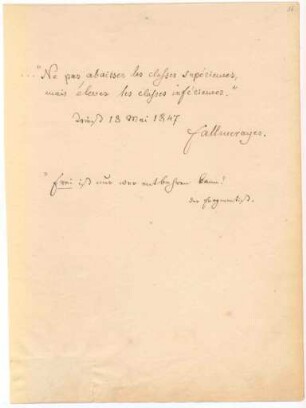 ..."Ne pas abaisser les classes supérieures,
mais élever les classes inférieures."
18 Mai 1847
Fallmerayer.
"Frei ist nur wer entbehren kann!
Der Fragmentist.